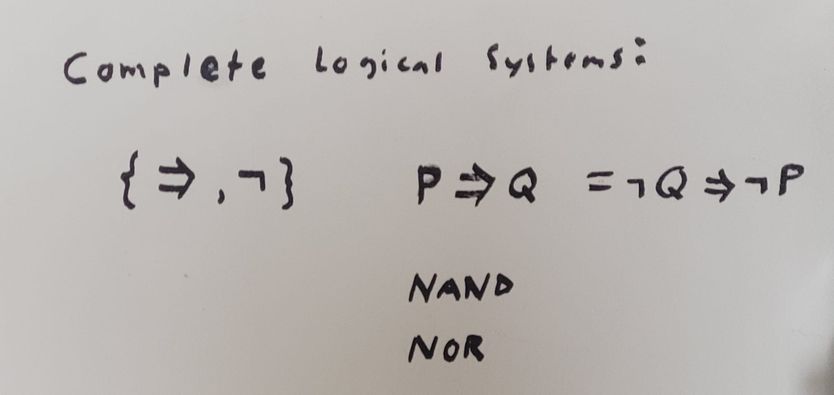 Complete Logical Systems:
{⇒,¬} P⇒Q =¬Q⇒¬P
NAND
NOR